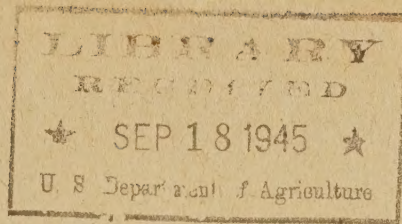 LIBRARY
RECEIVED
★ SEP 18 1945 ★
U S Department of Agriculture